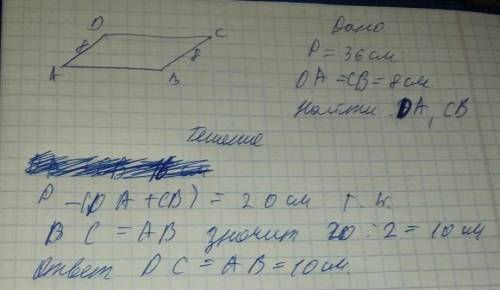 D
C
8
8
A
B
Дано
P = 36 см
DA = CB = 8 см
Найти: DA, CB
Решение
P -(DA + CB) = 20 см т. к.
BC = AB значит 20 : 2 = 10 см
Ответ DC = AB = 10 см